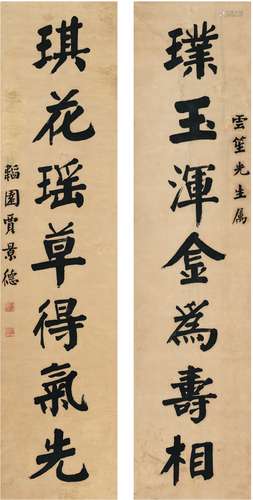 雲笙先生属
璞玉渾金為壽相
琪花瑶草得氣先
韜園賈景德